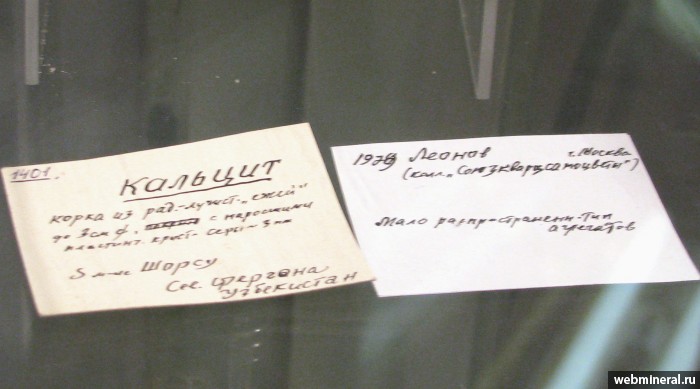 1401.
Кальцит
корка из рад.-лучист. "ежей"
до 3 см ф, с наросшими
пластинч. крист. серы ~ 3 mm
S м-ние Шорсу
Сев. Фергана
Узбекистан
1979 Леонов г. Москва
(колл. "Союзкварцсамоцветы")
Мало распространенн. тип
агрегатов
webmineral.ru